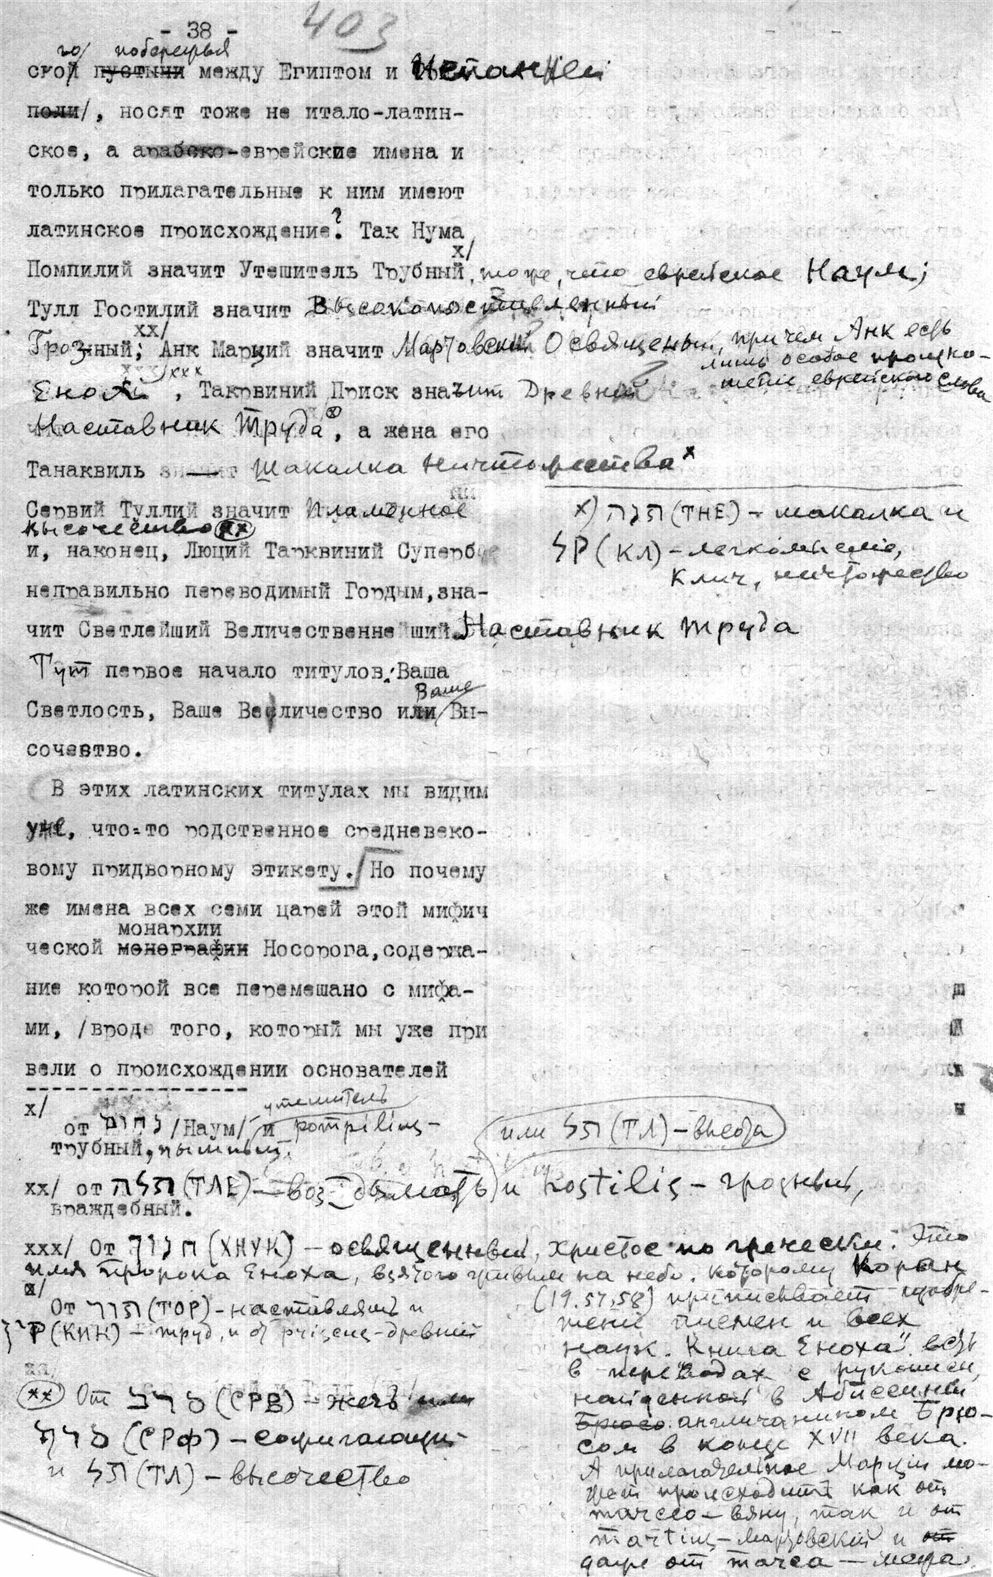 - 38 -
403
го/ побережья
ской пустыни между Египтом и Испанией
поли/, носят тоже не итало-латин-
ское, а арабско-еврейские имена и
только прилагательные к ним имеют
латинское происхождение? Так Нума
х/
Помпилий значит Утешитель Трубный, тоже, что еврейское Наум;
Тулл Гостилий значит Высокопоставленный
хх/
Грозный; Анк Марций значит Мартовский Освященный, причем Анк есть
лишь особое произно-
шение еврейского слова
ххх
Енох, Тарквиний Приск значит Древний
Наставник Труда, а жена его
Танаквиль Шакалка Ничтожества х
Сервий Туллий значит Пламенное
высочество (хх)
и, наконец, Люций Тарквиний Супербус
неправильно переводимый Гордым, зна-
чит Светлейший Величественнейший Наставник труда
Тут первое начало титулов: Ваша
Ваше
Светлость, Ваше Величество или Вы-
сочество.
х) תנה (ТНЕ) - шакалка и
קל (КЛ) - легкомыслие,
клич, ничтожество
В этих латинских титулах мы видим
уже, что-то родственное средневеко-
вому придворному этикету. Но почему
же имена всех семи царей этой мифич
монархии
ческой монографии Носорога, содержа-
ние которой все перемешано с мифа-
ми, /вроде того, который мы уже при
вели о происхождении основателей
х/
утешитель
от נחום /Наум/ и pompilius-
трубный, пышный.
или תל (ТЛ) - высота
хх/ от תלה (ТЛЕ) - воздымать) и hostilis - грозный,
враждебный.
ххх/ От חנוך (ХНУК) - освященный, христос по гречески. Это
имя пророка Еноха, взятого живым на небо. которому Коран
(19.57,58) приписывает изобре-
тение письмен и всех
наук. "Книга Еноха" есть
в переводах с рукописи,
найденной в Абиссинии
Брюсо англичанином Брю-
сом в конце XVII века.
А прилагательное Марций мо-
жет происходить как от
marceo - вяну, так и от
martius - мартовский и от
даже от marca -
х/
От תור (ТОР) - наставлять и
(КИН) - труд, и от priscus - древний
(хх) От סרב (СРВ) - жечь или
סרף (СРФ) - сожигающий
и תל (ТЛ) - высочество